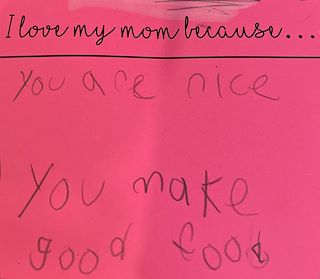 I love my mom because...
you are nice
you make
good food